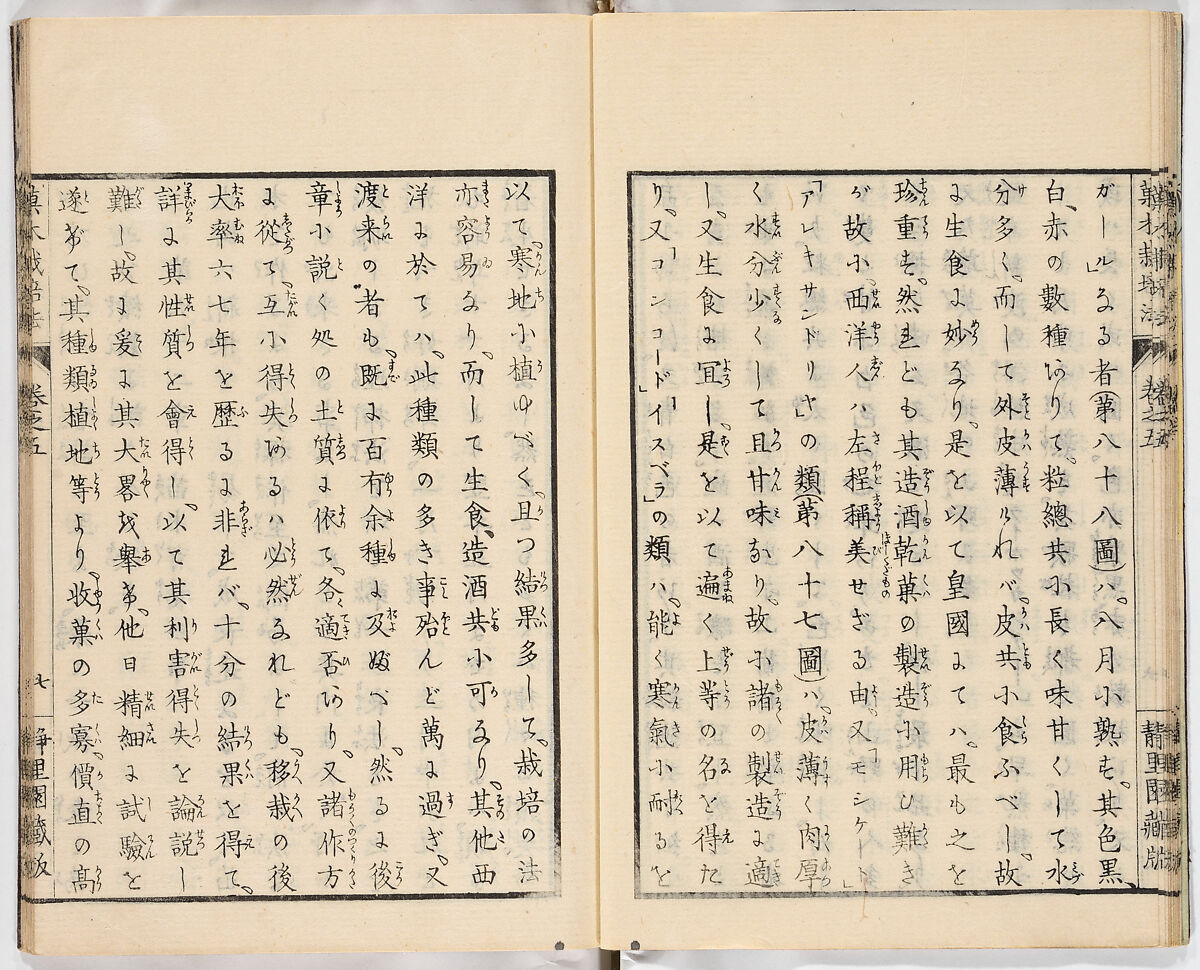 菓木栽培法 巻之五 静里園藏版
ガール」なる者(第八十八圖)ハ、八月に熟す、其色黒、
白、赤の數種ありて、粒總共に長く味甘くして水
分多く、而して外皮薄けれバ、皮共に食ふべし、故
に生食に妙なり、是を以て皇國にてハ、最も之を
珍重す、然れども其造酒乾菓の製造に用ひ難き
が故に、西洋人ハ左程稱美せざる由、又「モシケート」
「アレキサンドリヤ」の類(第八十七圖)ハ、皮薄く肉厚
く水分少くして且甘味なり、故に諸の製造に適
し、又生食に冝し、是を以て遍く上等の名を得た
り、又「コンコード」「イスベラ」の類ハ、能く寒氣に耐るを
以て、寒地に植ゆべく、且つ結果多して、栽培の法
亦容易なり、而して生食、造酒共に可なり、其他西
洋に於てハ、此種類の多き事殆んど萬に過ぎ、又
渡来の者も、既に百有余種に及ぶべし、然るに後
章に説く処の土質に依て、各適否あり、又諸作方
に從て、互に得失あるハ必然なれども、移栽の後
大率六七年を歴るに非れバ、十分の結果を得て、
詳に其性質を會得し、以て其利害得失を論説し
難し、故に爰に其大畧を舉げ、他日精細に試驗を
遂げて、其種類植地等より、收菓の多寡、價直の髙
菓木栽培法 巻之五 七 静里園藏版